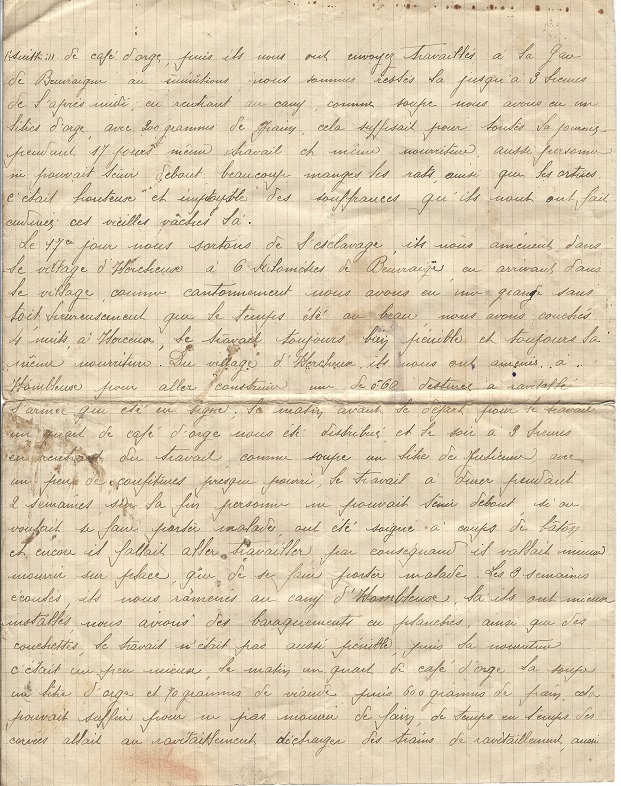 de café d'orge, puis ils nous ont envoyez travaillés a la Gare
de Beuraigne au munitions nous sommes restés la jusqu'a 3 heures
de l'après midi, en rentrant au camp, comme soupe nous avons eu un
litres d'orge, avec 200 grammes de pain, cela suffisait pour toutes la journée
pendant 17 jours même travail et même nourriture, aussi personne
ne pouvait tenir debout beaucoup manges les rats, ainsi que les orties
c'était honteuse et des souffrances qu'ils nont ont fait
endurer ces vieilles vâches là.
Le 17e jour nous sortons de l'esclavage, ils nous aménent dans
le village d'Hercheuse à 6 Kilométres de Beuraigne, en arrivant dans
le village comme cantonnement nous avons eu une grange sans
toit heureusement que le temps été au beau nous avons couchés
4 nuits, a le travail toujours bien pénible et toujours la
même nourriture. Du village d'Hercheuse ils nous ont amenés a
Hombleuse pour aller construire une de 0.60 destinés a ravitaillé
l'armée qui été en ligne, le matin avant le départ pour le travail
un quart de café d'orge nous été distribué et le soir a 3 heures
en rentrant du travail comme soupe un litre de Julienne avec
un peu de confitures presque pourri, le travail a durer pendant
2 semaines sur la fin personne ne pouvait tenir debout, si on
voulait se faire porter malade, ont été soigné a coups de baton
et encore il fallait aller travailler, par conséquand il vallait mieux
mourrir sur place que de se faire porter malade. Les 3 semaines
écoulés ils nous ramènes au camp d'Hombleuse, là ils ont mieux
installés nous avions des baraquements en planches, ainsi que des
couchettes, le travail n'était pas aussi pénible, puis la nourriture
c'était un peu mieux, le matin un quart de café d'orge la soupe
un litre d'orge et 70 grammes de viande puis 600 grammes de pain, cela
pouvait suffire pour ne pas mourir de faim, de temps en temps des
corvées allait au ravitaillement décharger des trains de ravitaillement, aussi